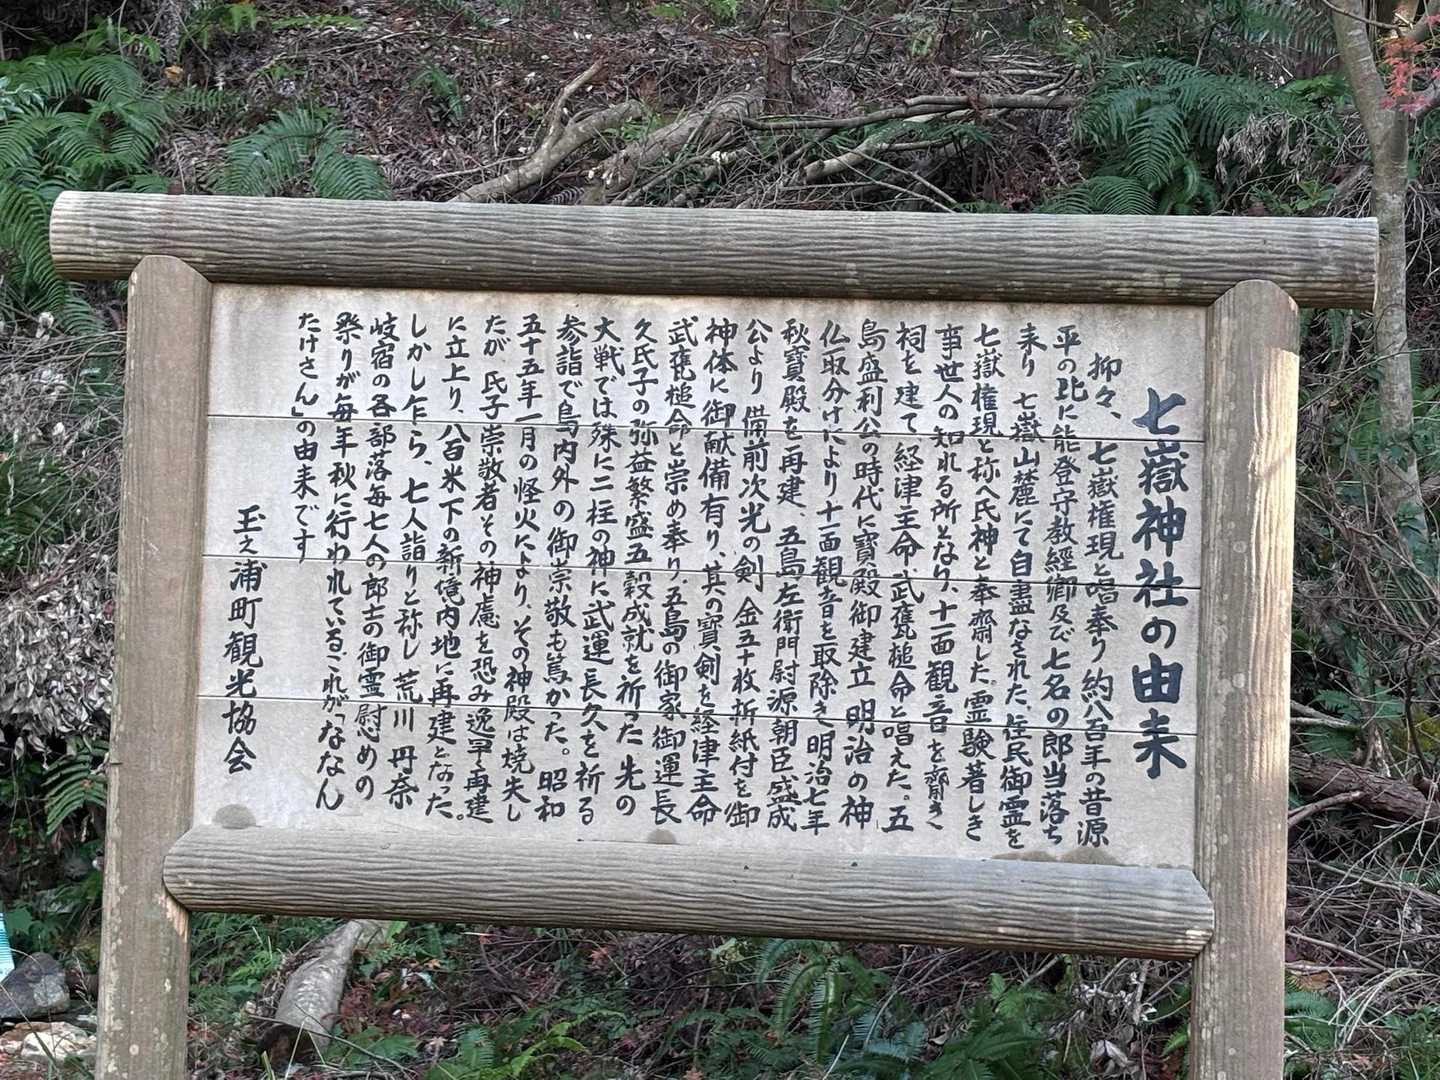 七嶽神社の由来
抑々、七嶽権現と唱奉り約八百年の昔源
平の比に能登守教經卿及び七名の郎当落ち
来り 七嶽山麓にて自盡なされた、住民御霊を
七嶽権現と称へ氏神と奉齋した。霊験著しき
事世人の知れる所となり、十一面観音を齋き
祠を建て、経津主命、武甕槌命と唱えた。五
島盛利公の時代に寶殿御建立 明治の神
仏取分けにより十一面観音を取除き明治七年
秋寶殿を再建、五島左衛門尉源朝臣盛成
公より 備前次光の剣 金五十枚、折紙付を御
神体に御献備有り、其の寶剣を経津主命
武甕槌命と崇め奉り、五島の御家御運長
久氏子の弥益繁盛五穀成就を祈った 先の
大戦では殊に二柱の神に武運長久を祈る
参詣で島内外の御崇敬も篤かった。昭和
五十五年一月の怪火により、その神殿は焼失し
たが、氏子崇敬者その神慮を恐み逸早く再建
に立上り、八百米下の新境内地に再建となった。
しかし乍ら、七人詣りと称し 荒川 丹奈
岐宿の各部落毎七人の郎士の御霊慰めの
祭りが毎年秋に行われている。これが「ななん
たけさん」の由来です
玉之浦町観光協会